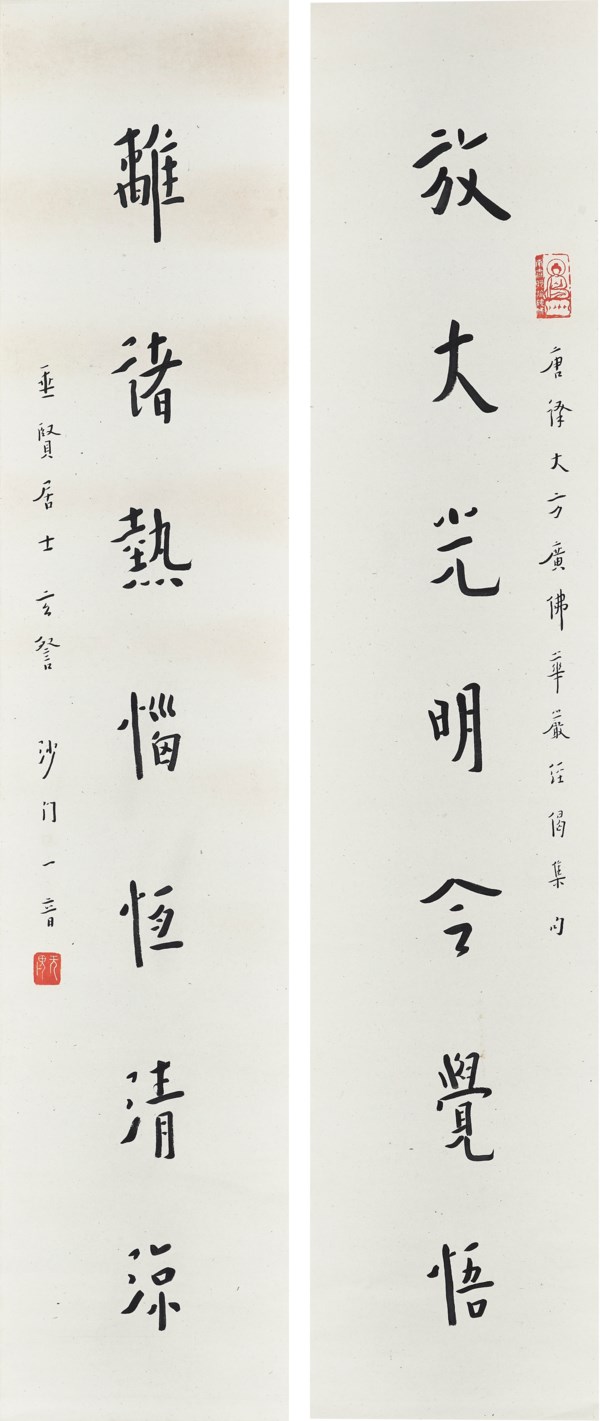 唐譯大方廣佛華嚴經偈集句
放大光明令覺悟
離諸熱惱恆清淳
亚賢居士玄詧 沙门一音